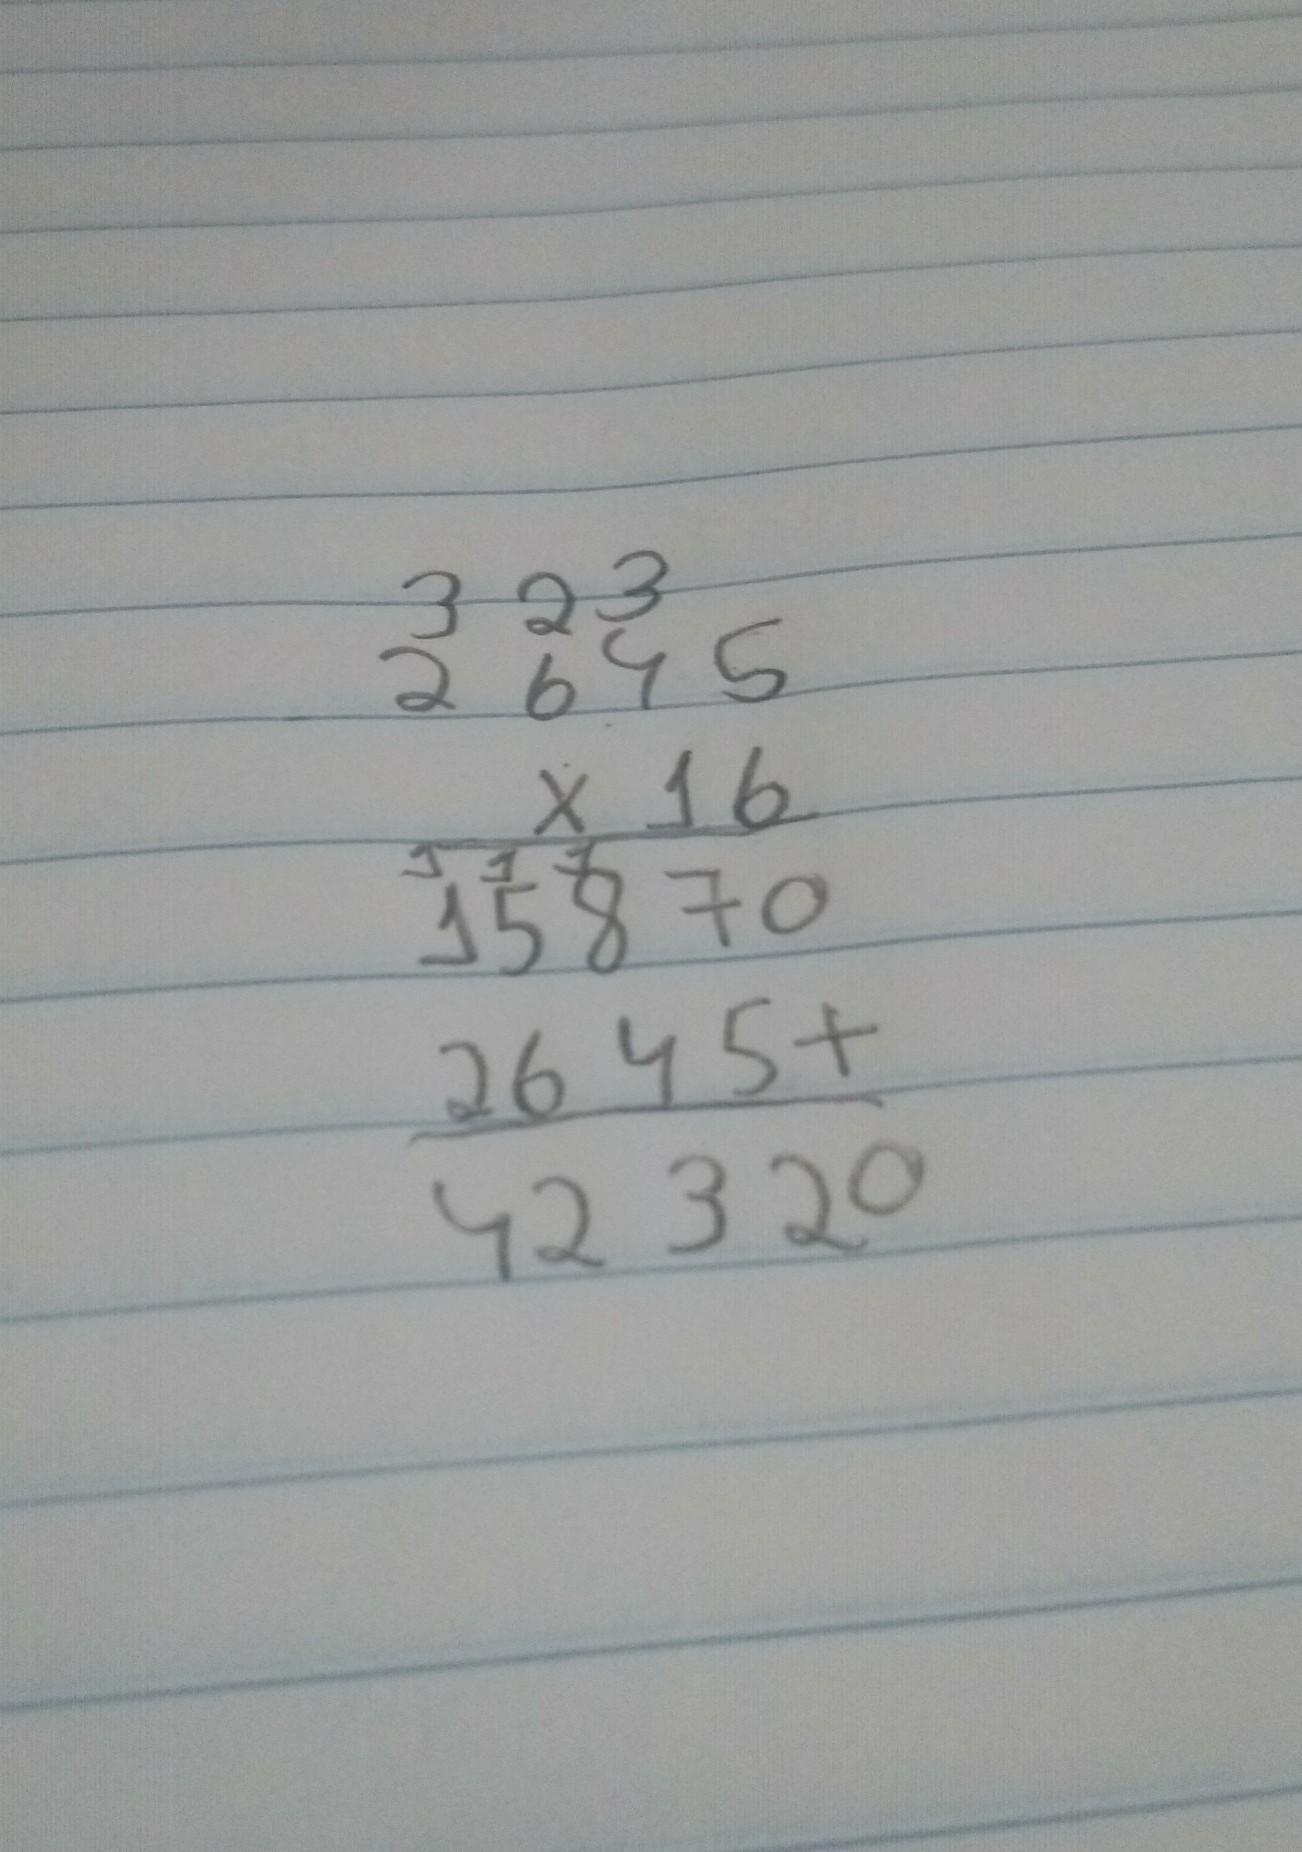 3 2 3
2 6 4 5
x 1 6
1 1 1
1 5 8 7 0
2 6 4 5 +
4 2 3 2 0